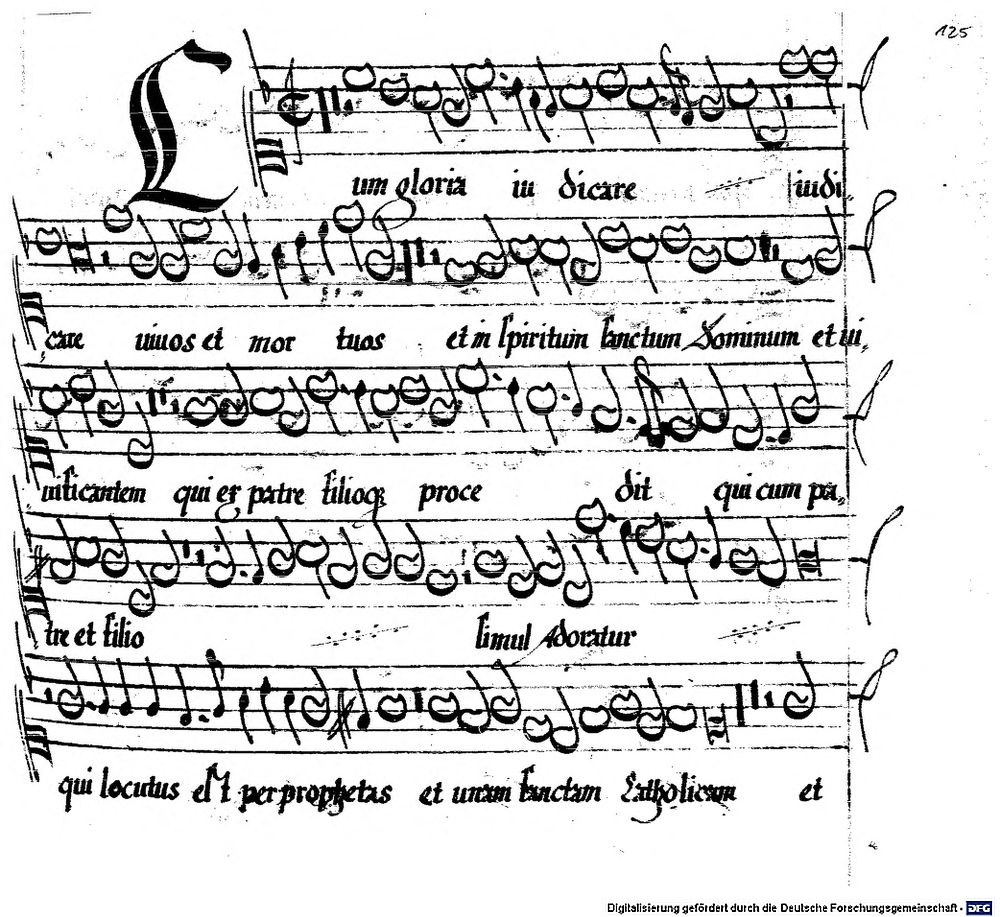 125
Cum gloria iudicare iudi
care uiuos et mortuos et in spiritum sanctum Dominum et ui,
uificantem qui ex patre filioq; procedit qui cum pa,
tre et filio simul Adoratur
qui locutus est per prophetas et unam sanctam Catholicam et
Digitalisierung gefördert durch die Deutsche Forschungsgemeinschaft - DFG